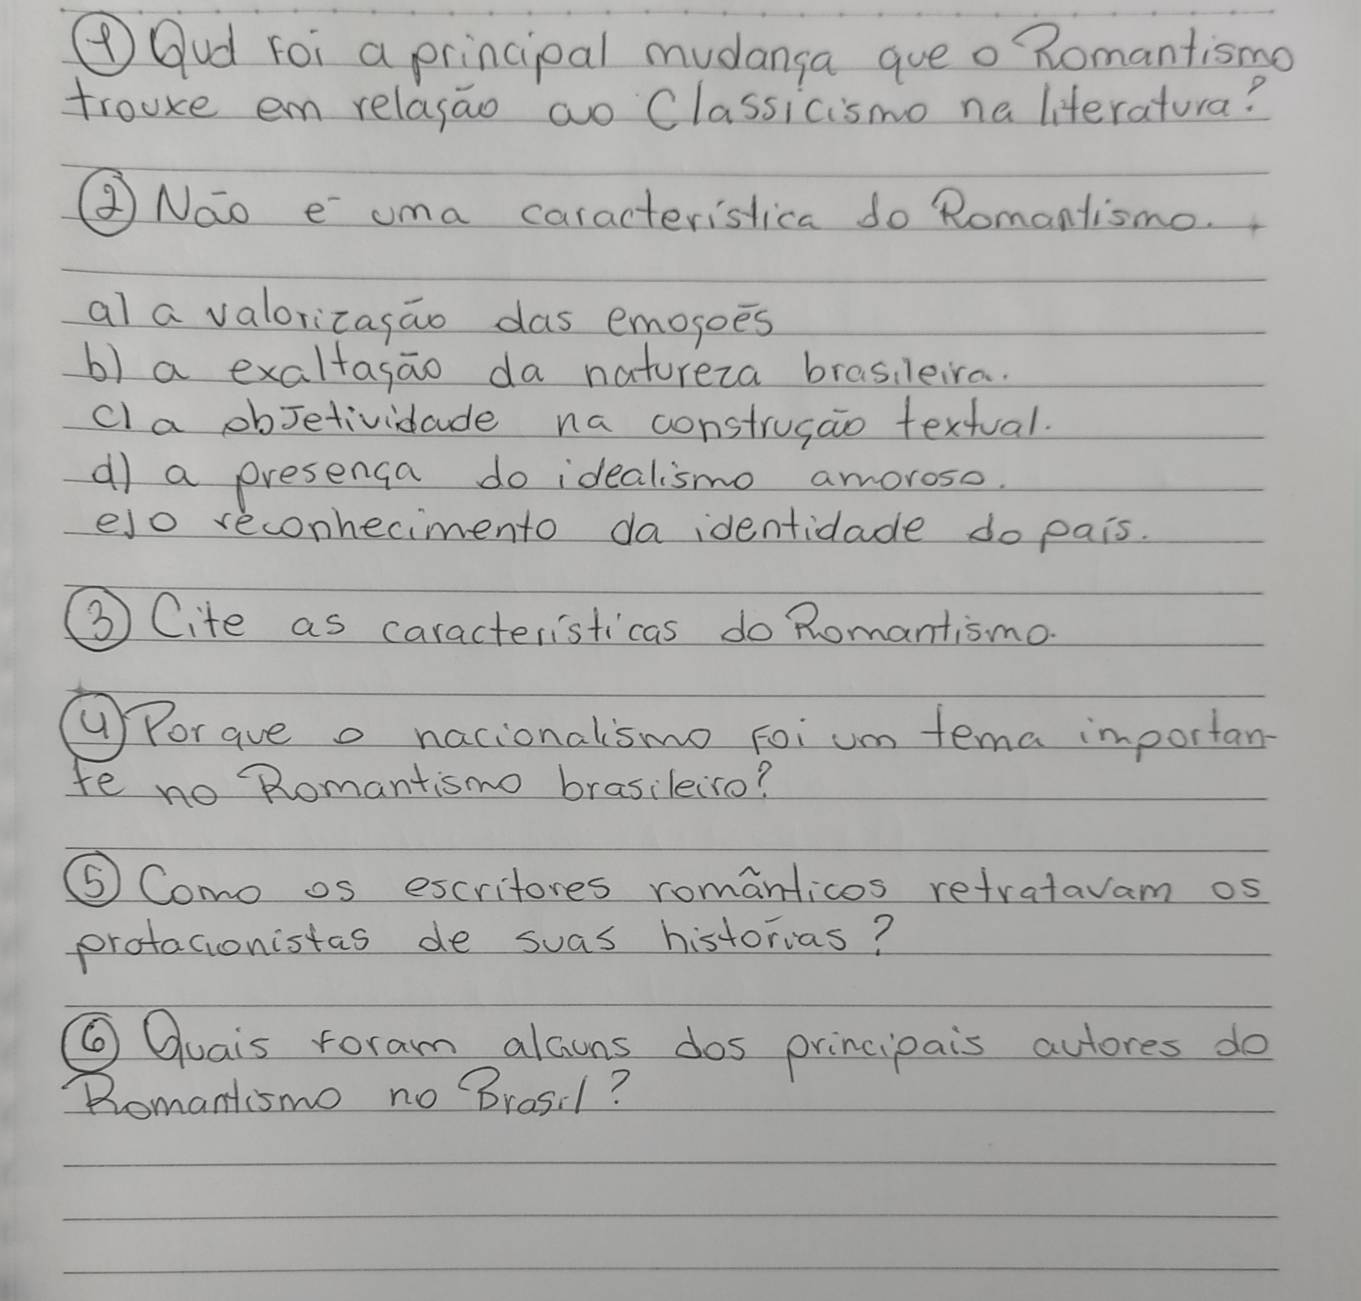 ① Qual foi a principal mudança que o Romantismo
trouxe em relação ao Classicismo na literatura?
② Não é uma característica do Romantismo.
a) a valorização das emoções
b) a exaltação da natureza brasileira.
c) a objetividade na construção textual.
d) a presença do idealismo amoroso.
e) o reconhecimento da identidade do país.
③ Cite as características do Romantismo.
④ Por que o nacionalismo foi um tema importan-
te no Romantismo brasileiro?
⑤ Como os escritores românticos retratavam os
protagonistas de suas histórias?
⑥ Quais foram alguns dos principais autores do
Romantismo no Brasil?